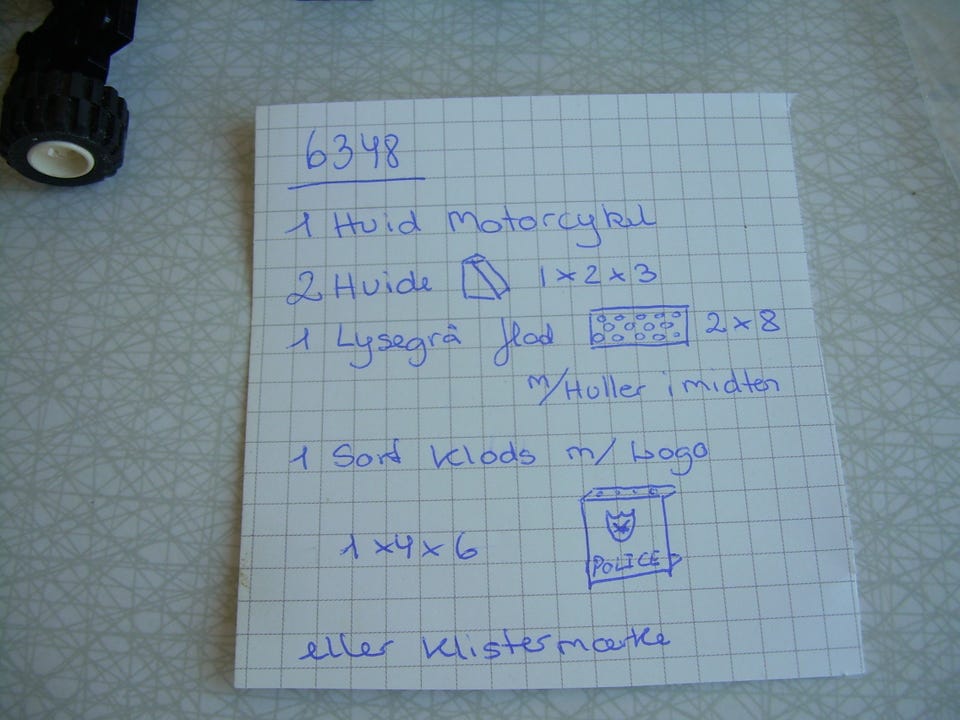 6348
1 Hvid Motorcykel
2 Hvide 1×2×3
1 Lysegrå flad 2×8
m/Huller i midten
1 Sort klods m/ Logo
1×4×6
POLICE
eller klistermærke